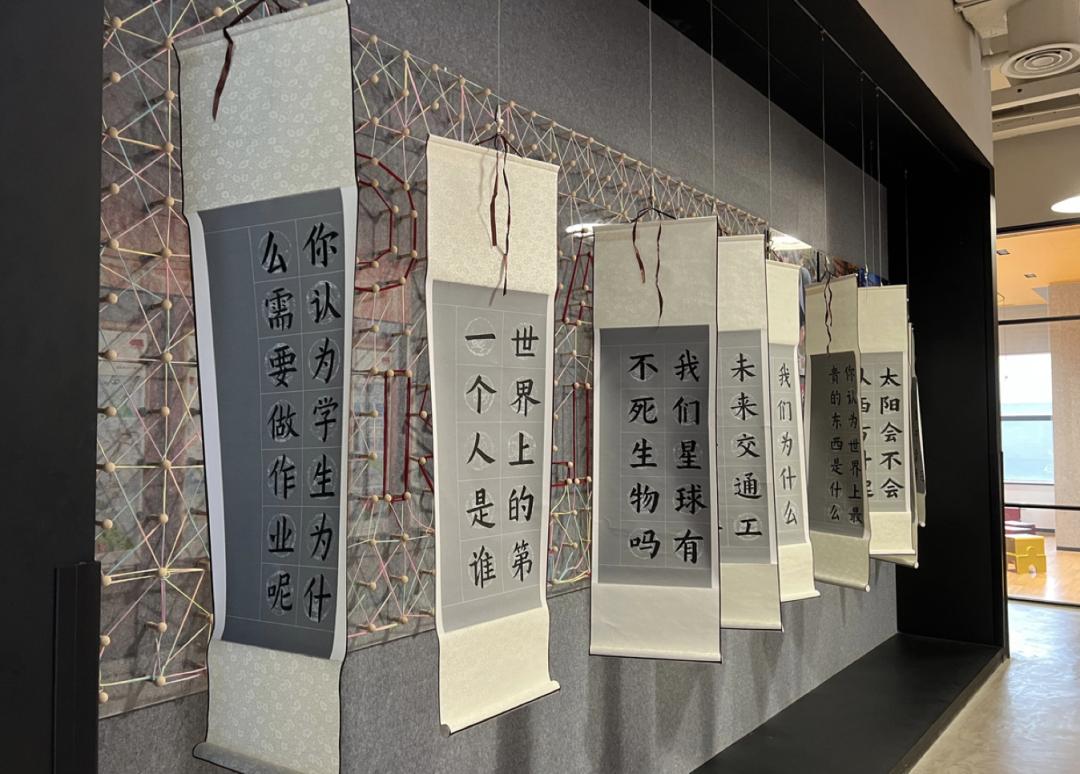 你认为学生为什
么需要做作业呢
世界上的第
一个人是谁
我们星球有
不死生物吗
未来交通工
我们为什么
你认为世界上最
贵的东西是什么
太阳会不会